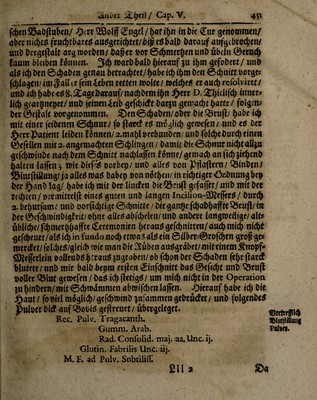 Ander Theil/ Cap. V. 451
schen Badstuben/ Herr Wolff Engel/ hat ihn in die Cur genommen/
aber nichts fruchtbares ausgerichtet/ biß es bald darauf aufgebrochen/
und dergestalt arg worden/ daß er vor Schmertzen und übeln Geruch
kaum bleiben können. Ich ward bald hierauf zu ihm gefodert/ und
als ich den Schaden genau betrachtet/ habe ich ihm den Schnitt vorge-
schlagen/ im Fall er sein Leben retten wolte/ welches er auch resolvirt/
und ich habe es 8. Tage darauf/ nachdem ihn Herr D. Thilisch inner-
lich gearzneyet/ und seinen Leib geschickt darzu gemacht hatte/ folgen-
der Gestalt vorgenommen. Den Schaden/ oder die Brust/ habe ich
mit einer seidenen Schnur/ so starck es möglich gewesen/ und es der
Herr Patient leiden können/ 2. mahl verbunden/ und solche durch einen
Gesellen mit 2. angemachten Schlingen/ damit die Schnur nicht allzu
geschwinde nach dem Schnitt nachlassen könne/ gemach an sich ziehend
halten lassen; wie dieses vorbey/ und alles von Pflastern/ Binden/
Blutstillung/ ja alles was dabey von nöthen/ in richtiger Ordnung bey
der Hand lag/ habe ich mit der lincken die Brust gefasset/ und mit der
rechten/ vermittelst eines guten und langen Incilion-Messers/ durch
2. behutsame und vorsichtige Schnitte/ die gantze schadhaffte Brust/ in
der Geschwindigkeit/ ohne alles abscheelen/ und andere langweilige/ alt-
übliche/ schmertzhaffte Ceremonien heraus geschnitten/ auch mich nicht
gescheuet/ als ich in fundo noch etwas als ein Silber-Groschen groß ge-
mercket/ solches/ gleich wie man die Rüben ausgräbet/ mit einem Knopf-
Messerlein vollends heraus zugraben/ ob schon der Schaden sehr starck
blutete/ und mir bald beym ersten Einschnitt das Gesicht und Brust
voller Blut geworffen/ das ich stetigs/ um mich nicht in der Operation
zu hindern/ mit Schwämmen abwischen lassen. Hierauf habe ich die
Haut/ so viel möglich/ geschwind zusammen gedrücket/ und folgendes
Pulver dick auf Bovis gestreuet/ übergeleget.
Vortrefflich
Blutstillung
Pulver.
Rec. Pulv. Tragacanth.
Gumm. Arab.
Rad. Consolid. maj. aa, Unc. ij.
Glutin. Fabrilis Unc. iij.
M. F. ad Pulv. Subtiliss.
Lll 2 Da